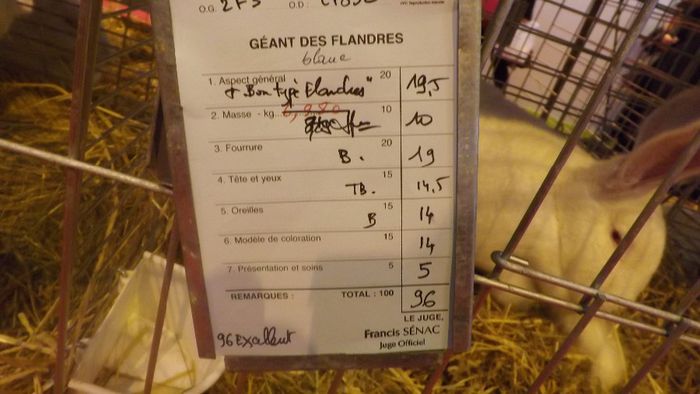 O.G. 2F5 O.D :
GÉANT DES FLANDRES
blanc
1. Aspect général 20 19,5
+ Bon type Flandres"
2. Masse - kg... 6,980 10 10
3. Fourrure 20 B. 19
4. Tête et yeux 15 TB. 14,5
5. Oreilles 15 B 14
6. Modèle de coloration 15 14
7. Présentation et soins 5 5
REMARQUES : TOTAL : 100 96
LE JUGE,
96 Excellent Francis SÉNAC
Juge Officiel